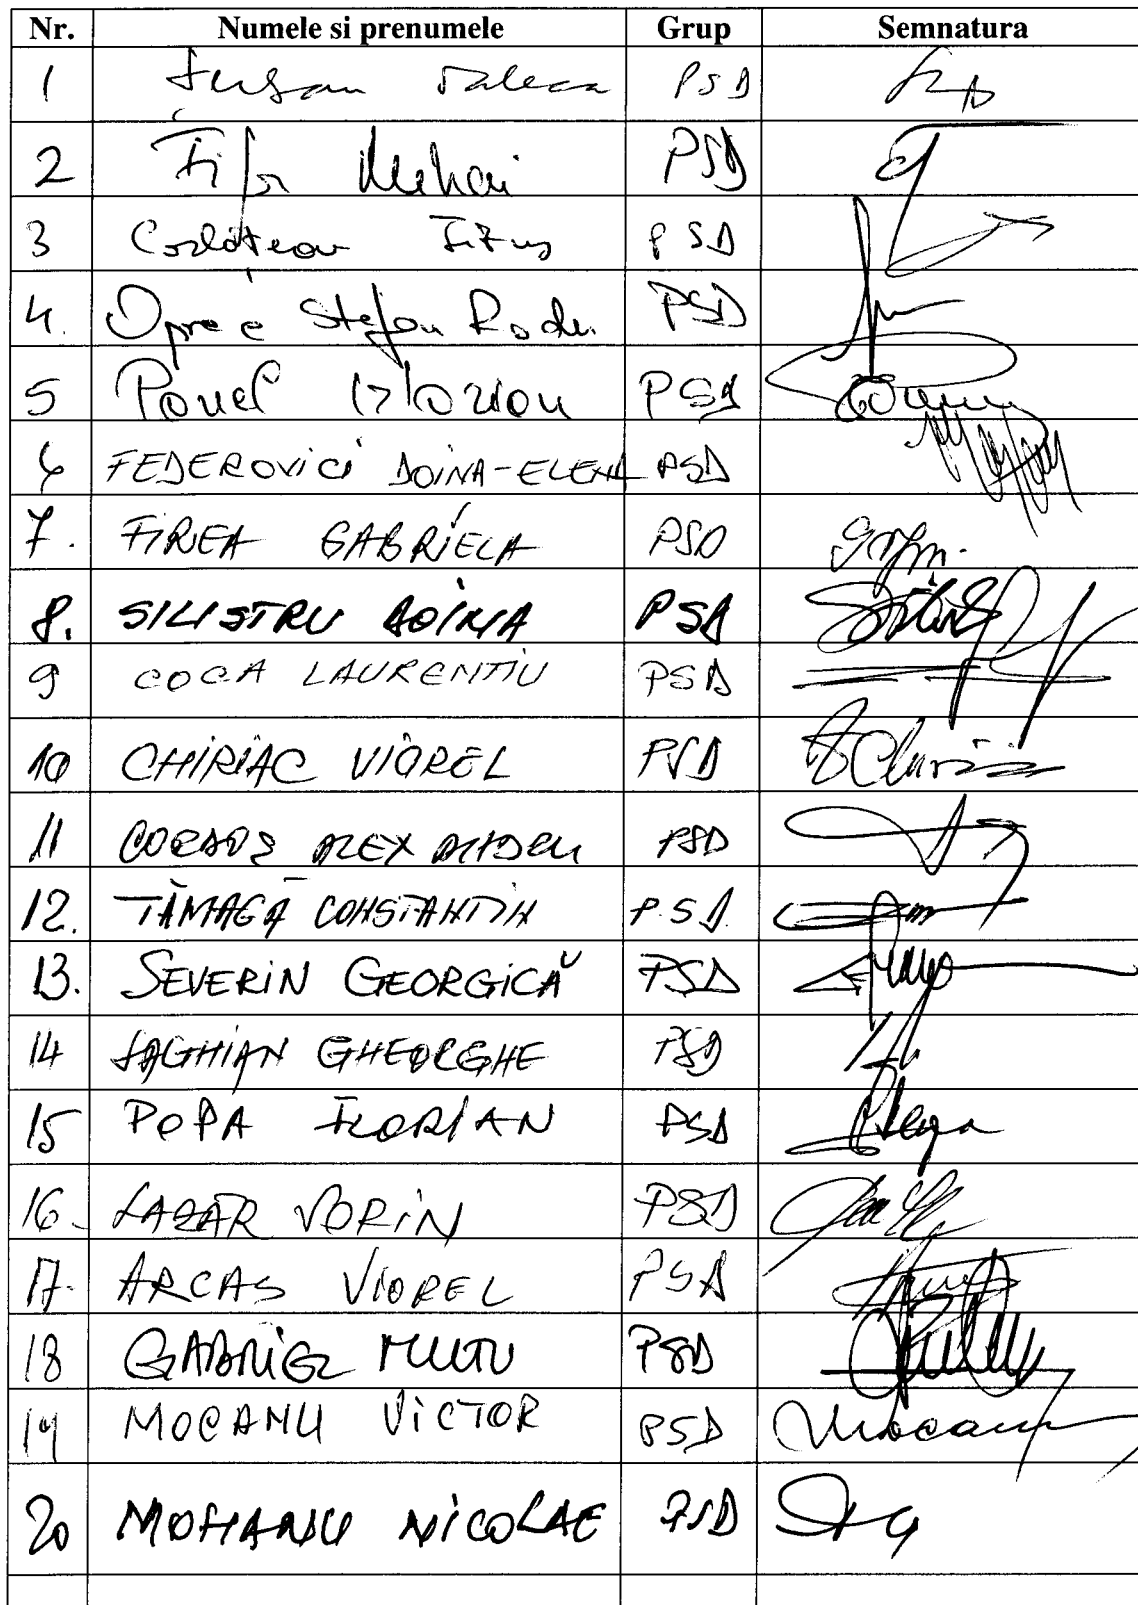 Nr. Numele si prenumele Grup Semnatura
1 PSD
2 Fifor Mihai PSD
3 Corlățean Titus PSD
4. Oprea Stefan Radu PSD
5 Pavel Marian PSD
6 FEDEROVICI DOINA-ELENA PSD
7. FIREA GABRIELA PSD
8. SILISTRU DOINA PSD
9 COCA LAURENTIU PSD
10 CHIRIAC VIOREL PSD
11 CORDOȘ ALEXANDRU PSD
12. TĂMAGĂ CONSTANTIN P.S.D
13. SEVERIN GEORGICĂ PSD
14 SAGHIAN GHEORGHE PSD
15 POPA FLORIAN PSD
16. LAZĂR SORIN PSD
17. ARCAȘ VIOREL PSD
18 GABRIEL MUTU PSD
19 MOCANU VICTOR PSD Mocanu
20 MOHANU NICOLAE PSD